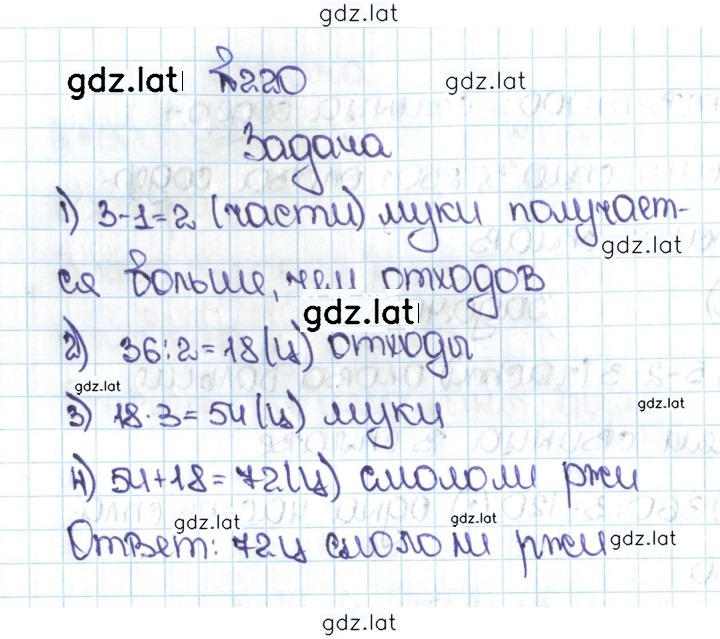 gdz.lat
gdz.lat №220 gdz.lat
Задача
1) 3-1=2 (части) муки получает-
gdz.lat
ся больше, чем отходов
gdz.lat
2) 36:2=18(ц) отходы
gdz.lat
gdz.lat
3) 18·3=54(ц) муки
4) 54+18=72(ц) смололи ржи
gdz.lat gdz.lat
Ответ: 72ц смололи ржи gdz.lat
gdz.lat